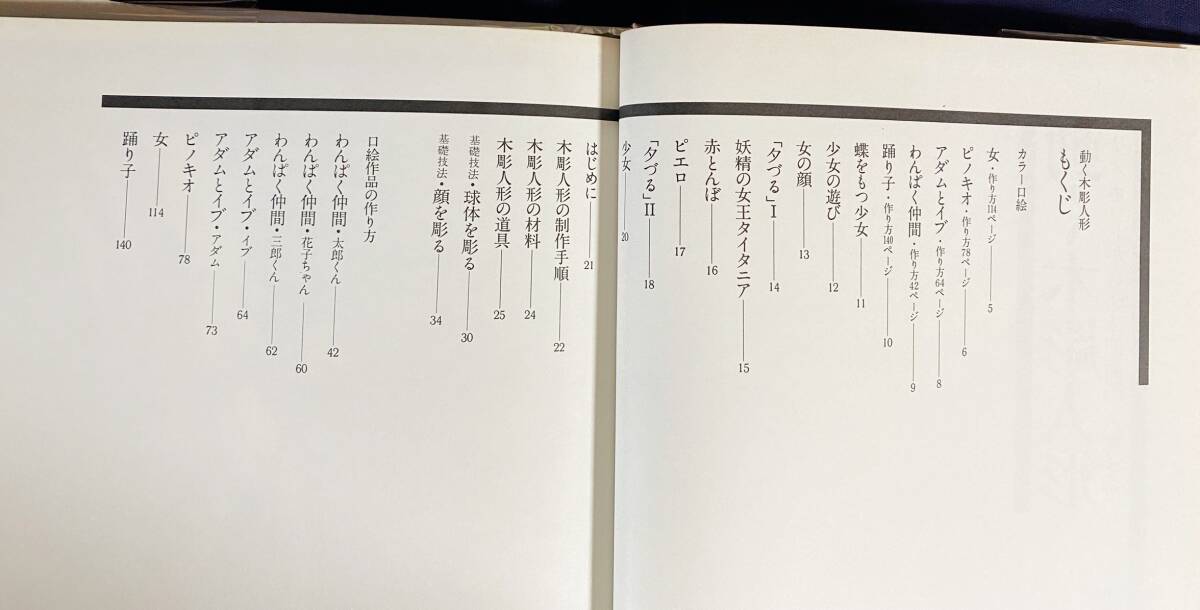 動く木彫人形
もくじ
カラー口絵
女・作り方114ページ——5
ピノキオ・作り方78ページ——6
アダムとイブ・作り方64ページ——8
わんぱく仲間・作り方42ページ——9
踊り子・作り方140ページ——10
蝶をもつ少女——11
少女の遊び——12
女の顔——13
「夕づる」Ⅰ——14
妖精の女王タイタニア——15
赤とんぼ——16
ピエロ——17
「夕づる」Ⅱ——18
少女——20
はじめに——21
木彫人形の制作手順——22
木彫人形の材料——24
木彫人形の道具——25
基礎技法・球体を彫る——30
基礎技法・顔を彫る——34
口絵作品の作り方
わんぱく仲間・太郎くん——42
わんぱく仲間・花子ちゃん——60
わんぱく仲間・三郎くん——62
アダムとイブ・イブ——64
アダムとイブ・アダム——73
ピノキオ——78
女——114
踊り子——140